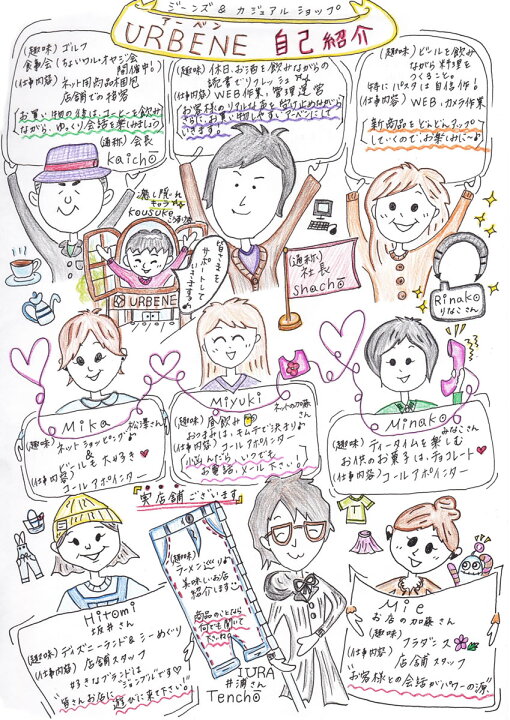 ジーンズ&カジュアルショップ
アーベン
URBENE 自己紹介
(趣味) ゴルフ
食事会(ちょいワル・オヤジ会
開催中!)
(仕事内容) ネット用商品梱包
店舗での接客
お買い物の後は、コーヒーを飲み
ながら、ゆっくり会話を楽しみましょう
(通称) 会長
kaichō
(趣味) 休日、お酒を飲みながらの
読書でリフレッシュ
(仕事内容) WEB作業、管理運営
お客様のリアルな声を受け止めながら
さらに、お買い物しやすいアーベンにして
いきます。
(趣味) ビールを飲み
ながら料理を
つくること。
特にパスタは自信作!
(仕事内容) WEB、カメラ作業
新商品をどんどんアップ
していくので、お楽しみに〜♪
癒し隊れ
キャラ
KOUSUKE
こうすけ
URBENE
サポートして
いきます
(通称)
社長
shachō
Rinako
りなこさん
Mika
松澤さん
(趣味) ネットショッピング♪
&
ビールも大好き
(仕事内容)
コールアポインター
Miyuki
ネットの加藤
さん
(趣味) 昼飲み
おつまみは、キムチで決まり♪
(仕事内容) コールアポインター
小込んだら、いつでも
お電話、メール下さい!
Minako
みなこさん
(趣味) ティータイムを楽しむ
お供のお菓子は、チョコレート
(仕事内容) コールアポインター
実店舗ございます
Hitomi
坂井さん
(趣味) ディズニーランド&シーめぐり
(仕事内容) 店舗スタッフ
好きなブランドは
"ジャンブル"です
皆さんお店に 遊びに来て下さい!
(趣味)
ラーメン巡り
美味しいお店
紹介します
商品のことなら
何でも聞いて
下さいね
IURA
井浦さん
Tenchō
Mie
お店の加藤さん
(趣味)
フラダンス
(仕事内容)
店舗スタッフ
"お客様との会話がパワーの源"